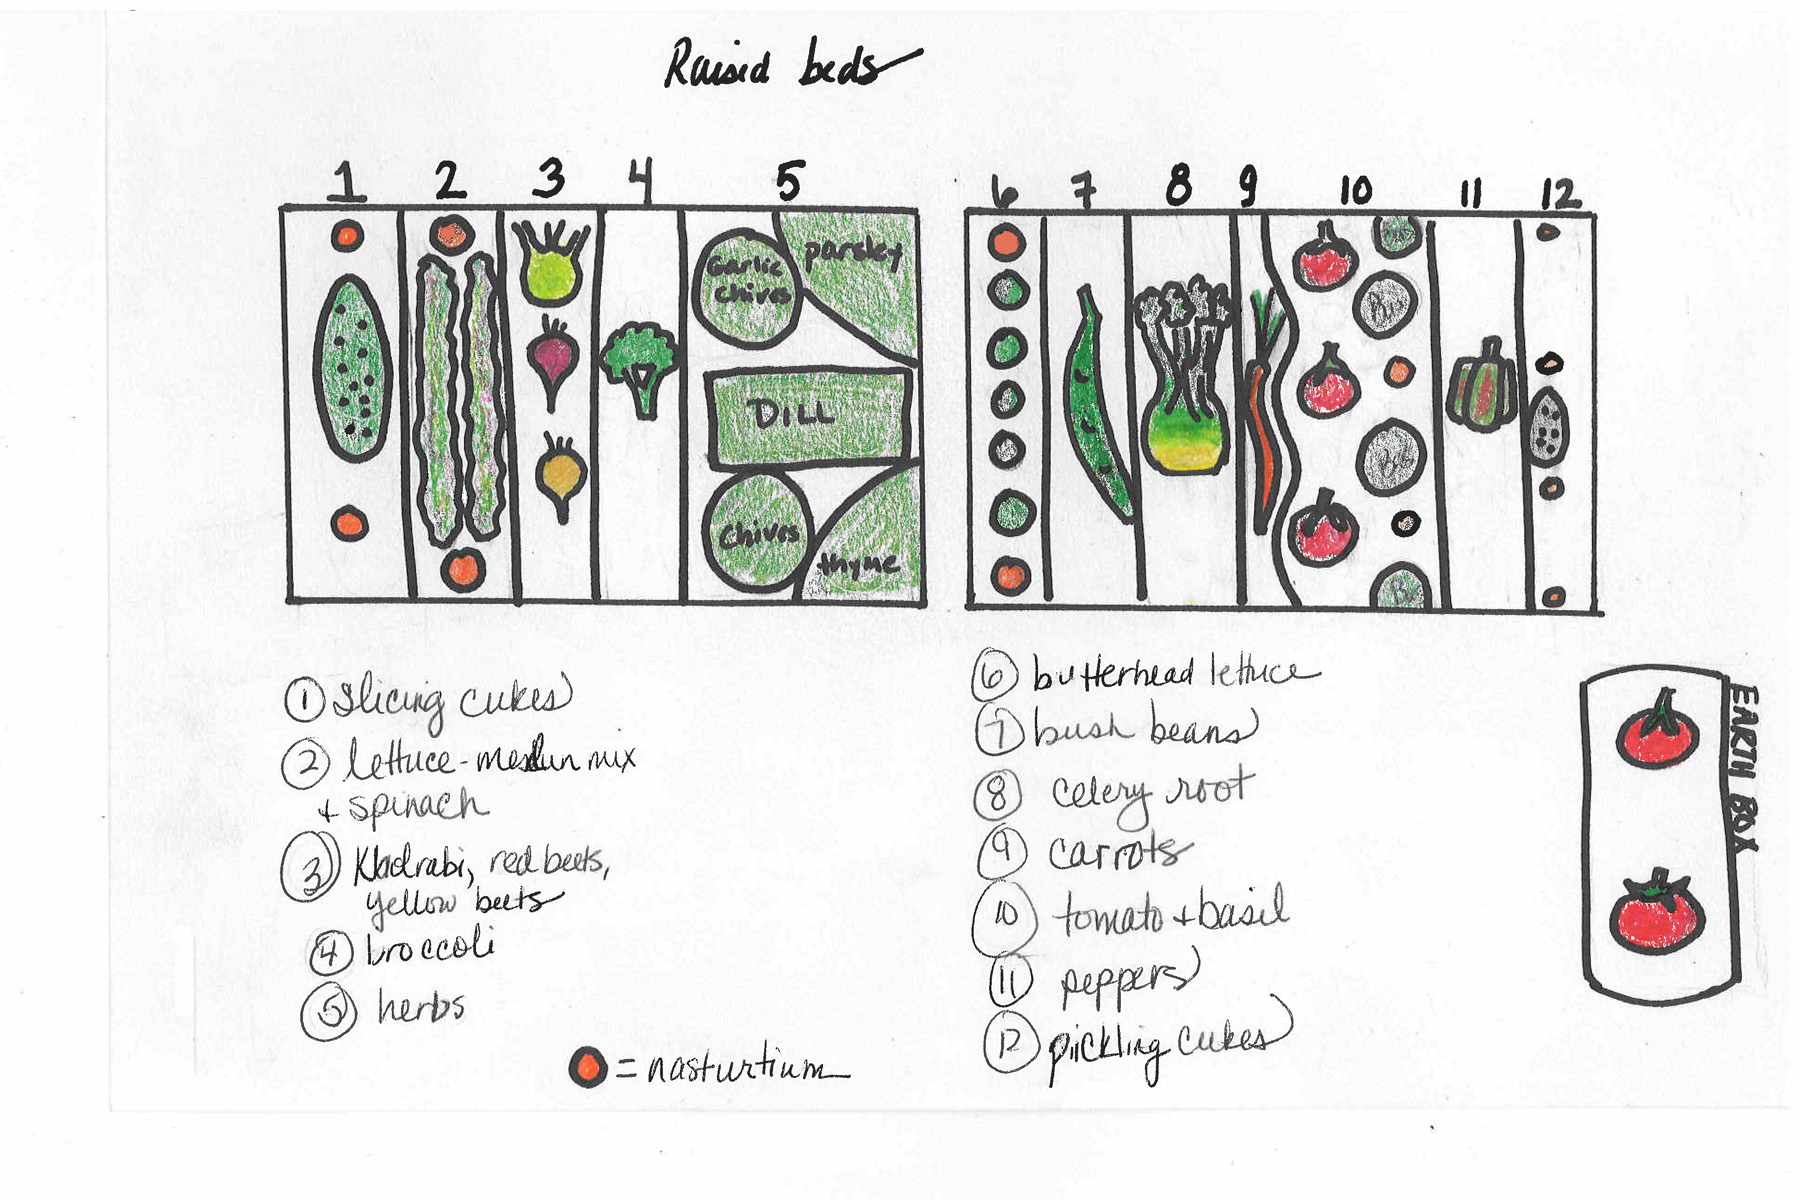 Raised beds
1 2 3 4 5
6 7 8 9 10 11 12
Garlic chives
parsley
DILL
Chives
thyme
1 slicing cukes
2 lettuce - mesclun mix
+ spinach
3 Kholrabi, red beets,
yellow beets
4 broccoli
5 herbs
= nasturtium
6 butterhead lettuce
7 bush beans
8 celery root
9 carrots
10 tomato + basil
11 peppers
12 pickling cukes
EARTH BOX